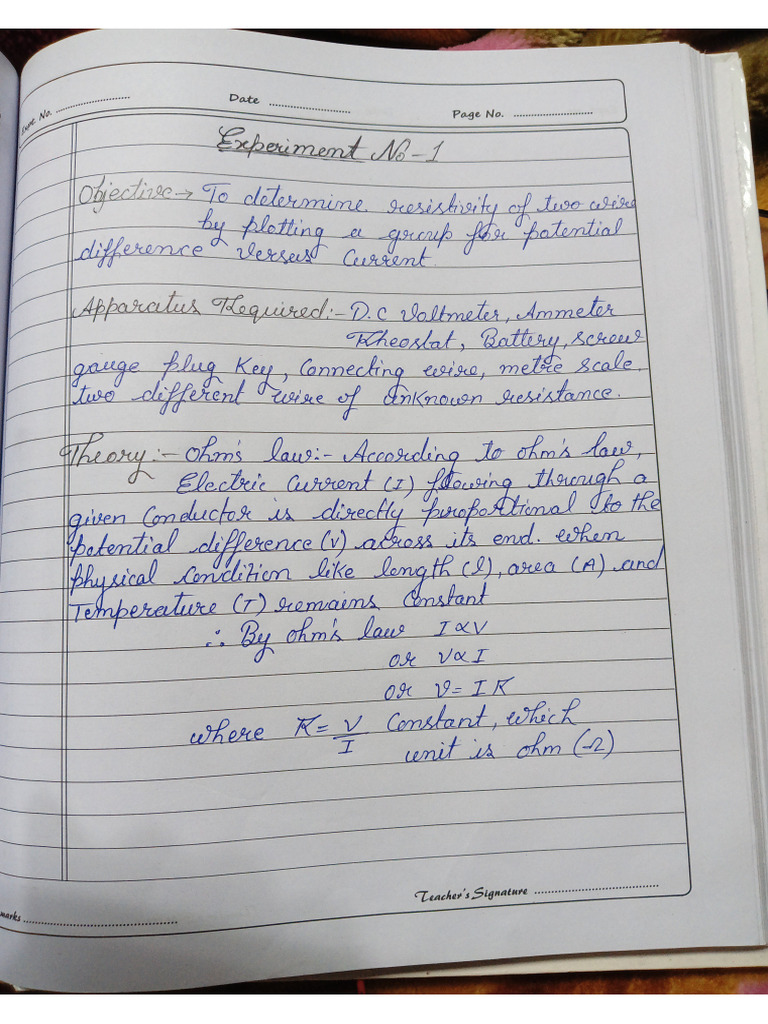 Expt. No. ........................
Date ........................
Page No. ........................
Experiment No - 1
Objective → To determine resistivity of two wire
by plotting a group for potential
difference versus current.
Apparatus Required:- D.C Voltmeter, Ammeter
Rheostat, Battery, screw
gauge plug Key, Connecting wire, metre scale.
two different wire of unknown resistance.
Theory:- Ohm's law:- According to ohm's law,
Electric Current (I) flowing through a
given Conductor is directly proportional to the
potential difference (V) across its end. when
physical condition like length (l), area (A) and
Temperature (T) remains Constant
∴ By ohm's law I ∝ V
or V ∝ I
or V = I R
where R = V/I Constant, which
unit is ohm (Ω)
Teacher's Signature ........................
marks ........................